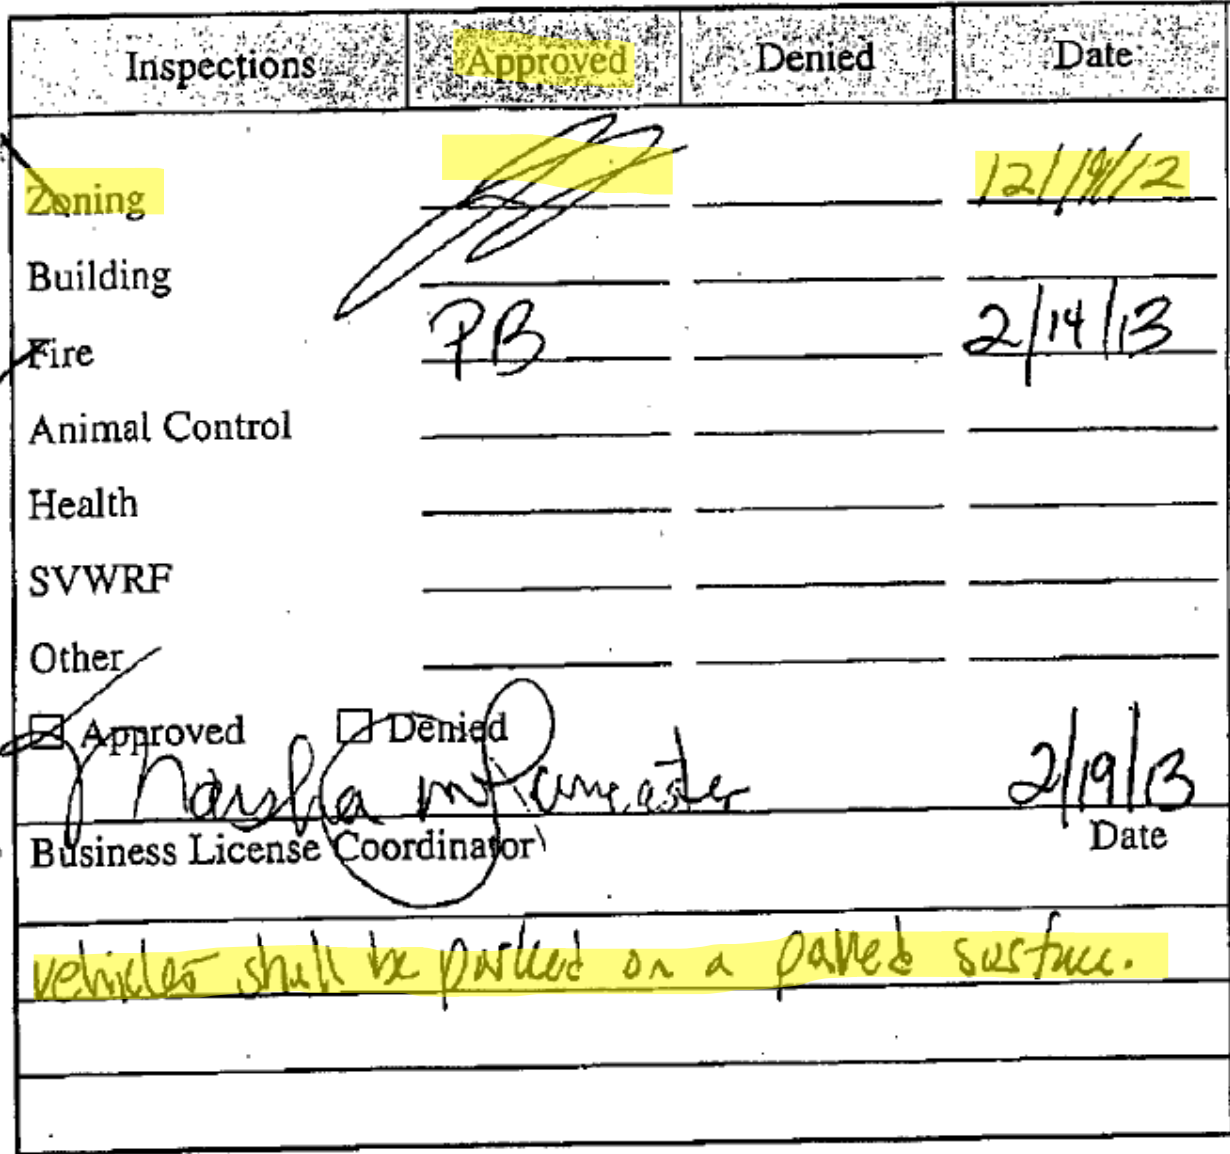 Inspections Approved Denied Date
Zoning 12/19/12
Building
Fire PB 2/14/13
Animal Control
Health
SVWRF
Other
Approved Denied
Marsha m 2/19/13
Business License Coordinator Date
vehicles shall be parked on a paved surface.